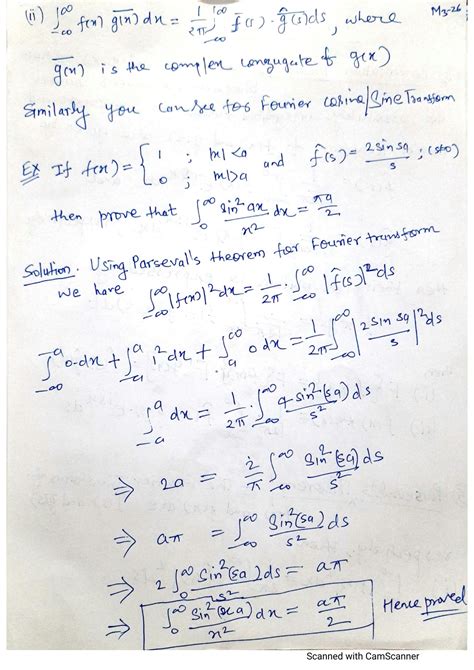 M3-26
(ii) ∫_{-∞}^{∞} f(x) \overline{g(x)} dx = 1/2π ∫_{-∞}^{∞} f̂(s) · \overline{ĝ(s)} ds, where
\overline{g(x)} is the complex conjugate of g(x)
Similarly you can see for Fourier cosine/Sine Transform
Ex If f(x) = { 1 ; |x| < a
0 ; |x| > a and f̂(s) = 2 sin sa / s ; (s≠0)
then prove that ∫_0^∞ sin² ax / x² dx = πa/2
Solution. Using Parseval's theorem for Fourier transform
we have ∫_{-∞}^{∞} |f(x)|² dx = 1/2π · ∫_{-∞}^{∞} |f̂(s)|² ds
∫_{-∞}^{-a} 0·dx + ∫_{-a}^{a} 1² dx + ∫_a^∞ 0 dx = 1/2π ∫_{-∞}^{∞} |2 sin sa / s|² ds
∫_{-a}^{a} dx = 1/2π · ∫_{-∞}^{∞} 4 sin²(sa) / s² ds
⇒ 2a = 2/π ∫_{-∞}^{∞} sin²(sa) / s² ds
⇒ aπ = ∫_{-∞}^{∞} sin²(sa) / s² ds
⇒ 2 ∫_0^∞ sin²(sa) / s² ds = aπ
⇒ ∫_0^∞ sin²(xa) / x² dx = aπ/2 Hence proved
Scanned with CamScanner